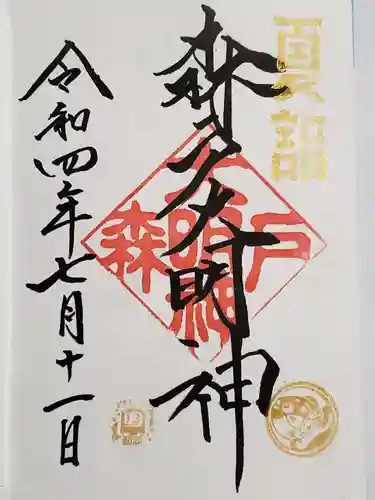 夏詣
森戸大明神
森戸大明神
令和四年七月十一日